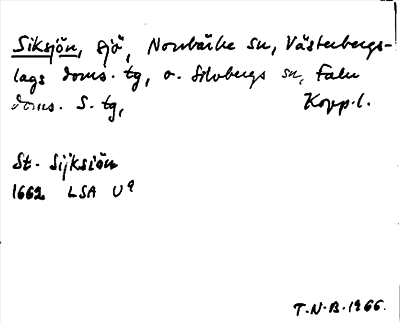 Siksjön, sjö, Norrbärke sn, Västerbergs-
lags doms. tg, o. Silvbergs sn, Falu
doms. S. tg, Kopp.l.
St. Sijksiön
1662 LSA U 9
T.N.B. 1966.